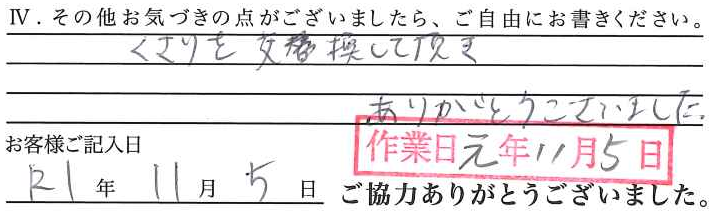 Ⅳ．その他お気づきの点がございましたら、ご自由にお書きください。
くさりを交換して頂き
ありがとうございました。
お客様ご記入日
作業日元年11月5日
R1年11月5日
ご協力ありがとうございました。